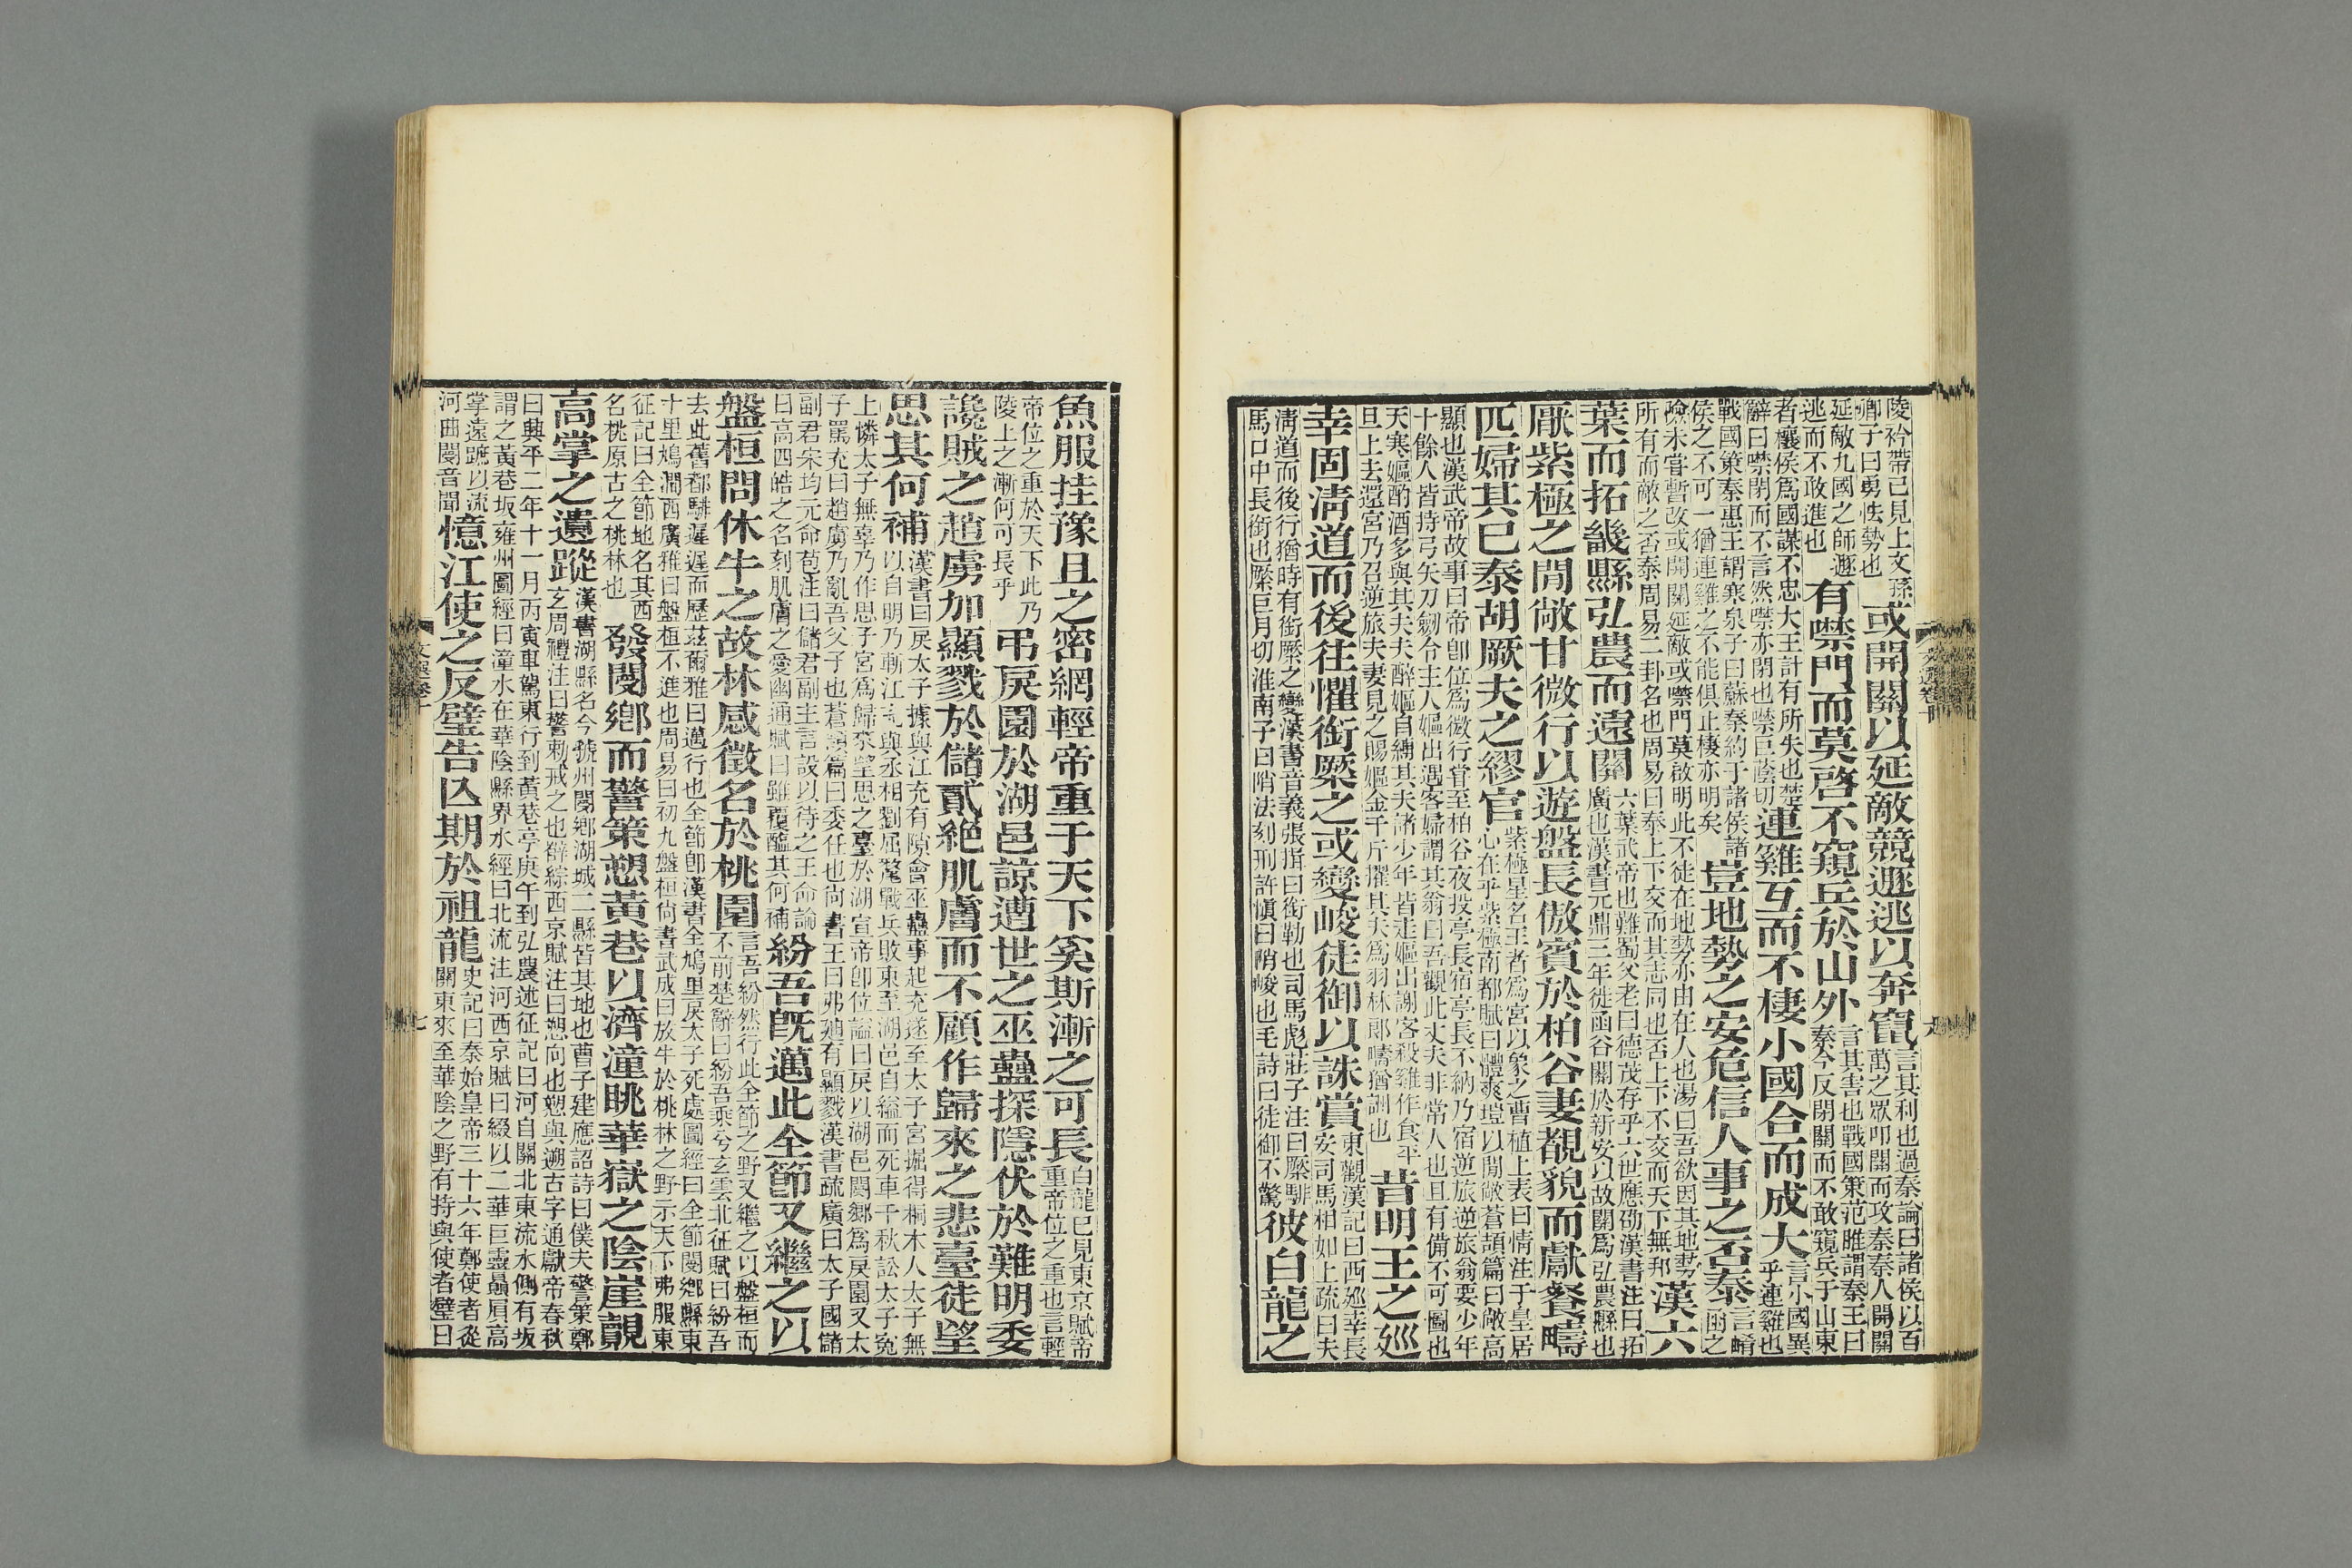 陵衿帶已見上文孫
卿子曰勇怯勢也
或開關以延敵競遯逃以奔竄
言其利也過秦論曰諸侯以百
萬之眾叩關而攻秦秦人開關
延敵九國之師遯
逃而不敢進也
有噤門而莫啓不窺兵於山外
言其害也戰國策范雎謂秦王曰
秦今反閉關而不敢窺兵于山東
者穰侯爲國謀不忠大王計有所失也楚
辭曰噤閉而不言然噤亦閉也噤巨蔭切
連雞互而不棲小國合而成大
言小國異
乎連雞也
戰國策秦惠王謂寒泉子曰蘇秦約于諸侯諸
侯之不可一猶連雞之不能俱止棲亦明矣
豈地勢之安危信人事之否泰
言崤
函之
險未嘗暫改或開關延敵或噤門莫啟明此不徒在地勢亦由在人也湯曰吾欲因其地勢
所有而敵之否泰周易二卦名也周易曰泰上下交而其志同也否上下不交而天下無邦
漢六
葉而拓畿縣弘農而遠關
六葉武帝也難蜀父老曰德茂存乎六世應劭漢書注曰拓
廣也漢書元鼎三年徙函谷關於新安以故關爲弘農縣也
厭紫極之閒敞甘微行以遊盤長傲賓於柏谷妻覩貌而獻餐疇
匹婦其已泰胡厥夫之繆官
紫極星名王者爲宮以象之曹植上表曰情注于皇居
心在乎紫極南都賦曰體爽塏以閒敞蒼頡篇曰敞高
顯也漢武帝故事曰帝卽位爲微行嘗至柏谷夜投亭長宿亭長不納乃宿逆旅逆旅翁要少年
十餘人皆持弓矢刀劒令主人嫗出遇客婦謂其翁曰吾觀此丈夫非常人也且有備不可圖也
天寒嫗酌酒多與其夫夫醉嫗自縛其夫諸少年皆走嫗出謝客殺雞作食平
旦上去還宮乃召逆旅夫妻見之賜嫗金千斤擢其夫爲羽林郎疇猶訓也
昔明王之巡
幸固清道而後往懼銜橜之或變峻徒御以誅賞
東觀漢記曰西廵幸長
安司馬相如上疏曰夫
清道而後行猶時有銜橜之變漢書音義張揖曰銜勒也司馬彪莊子注曰橜騑
馬口中長銜也橜巨月切淮南子曰陗法刻刑許愼曰陗峻也毛詩曰徒御不驚
彼白龍之
魚服挂豫且之密網輕帝重于天下奚斯漸之可長
白龍已見東京賦帝
重帝位之重也言輕
帝位之重於天下此乃
陵上之漸何可長乎
弔戾園於湖邑諒遭世之巫蠱探隱伏於難明委
讒賊之趙虜加顯戮於儲貳絶肌膚而不顧作歸來之悲臺徒望
思其何補
漢書曰戾太子據與江充有隙會巫蠱事起充遂至太子宮掘得桐木人太子無
以自明乃斬江充與丞相劉屈氂戰兵敗東至湖邑自縊而死車千秋訟太子冤
上憐太子無辜乃作思子宮爲歸來望思之臺於湖宣帝卽位諡曰戾以湖邑閿鄉爲戾園又太
子罵充曰趙虜乃亂吾父子也蒼頡篇曰委任也尚書王曰弗廸有顯戮漢書疏廣曰太子國儲
副君宋均元命苞注曰儲君副主言設以待之王命論
曰高四皓之名刻肌膚之愛幽通賦曰雖覆醢其何補
紛吾旣邁此全節又繼之以
盤桓問休牛之故林感徵名於桃園
言吾紛然行此全節之野又繼之以盤桓而
不前楚辭曰紛吾乘兮玄雲北征賦曰紛吾
去此舊都騑遲遲而歷茲爾雅曰邁行也全節卽漢書全鳩里戾太子死處圖經曰全節閿鄉縣東
十里鳩澗西廣雅曰盤桓不進也周易曰初九盤桓尚書武成曰放牛於桃林之野示天下弗服東
征記曰全節地名其西
名桃原古之桃林也
發閿鄉而警策愬黃巷以濟潼眺華嶽之陰崖覿
高掌之遺蹤
漢書湖縣名今虢州閿鄉湖城二縣皆其地也曹子建應詔詩曰僕夫警策鄭
玄周禮注曰警勑戒之也薛綜西京賦注曰愬向也愬與遡古字通獻帝春秋
曰興平二年十一月丙寅車駕東行到黃巷亭庚午到弘農述征記曰河自關北東流水側有坂
謂之黃巷坂雍州圖經曰潼水在華陰縣界水經曰北流注河西京賦曰綴以二華巨靈贔屓高
掌遠蹠以流
河曲閿音聞
憶江使之反璧告亾期於祖龍
史記曰秦始皇帝三十六年鄭使者從
關東來至華陰之野有持與使者璧曰